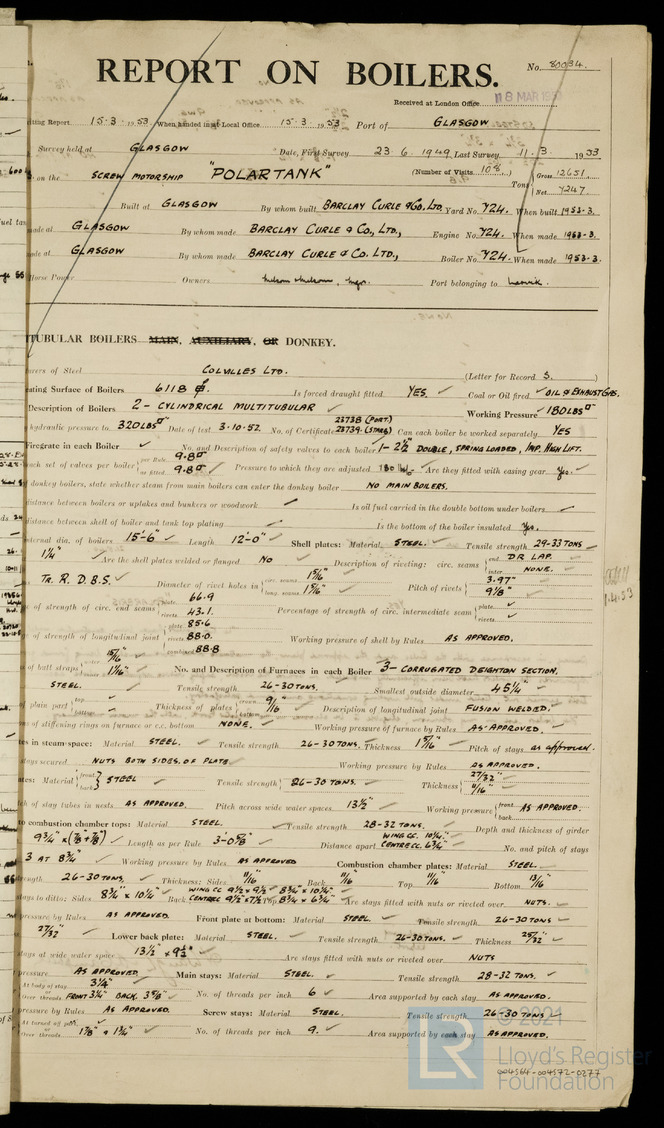 REPORT ON BOILERS.
No. 80034.
Received at London Office 18 MAR
ting Report 15.3.1953 When handed in at Local Office 15.3.1953 Port of GLASGOW
Survey held at GLASGOW Date, First Survey 23.6.1949 Last Survey 11.3.1953
on the SCREW MOTORSHIP "POLARTANK" (Number of Visits 108) Tons Gross 12651 Net 7247
Built at GLASGOW By whom built BARCLAY CURLE & CO. LTD. Yard No. 724. When built 1953-3.
made at GLASGOW By whom made BARCLAY CURLE & CO., LTD., Engine No. 724. When made 1953-3.
made at GLASGOW By whom made BARCLAY CURLE & CO. LTD., Boiler No. 724. When made 1953-3.
Horse Power Owners Port belonging to
TUBULAR BOILERS MAIN, AUXILIARY, OR DONKEY.
urers of Steel COLVILLES LTD. (Letter for Record S.)
ating Surface of Boilers 6118 Is forced draught fitted YES. Coal or Oil fired OIL & EXHAUST GAS.
Description of Boilers 2 - CYLINDRICAL MULTITUBULAR Working Pressure 180 LBS
hydraulic pressure to 320 LBS Date of test 3.10.52. No. of Certificate 23738 (PORT.) 23739. (STARB) Can each boiler be worked separately YES
Firegrate in each Boiler No. and Description of safety valves to each boiler 1-2½ DOUBLE, SPRING LOADED, IMP. HIGH LIFT.
each set of valves per boiler per Rule 9.8 as fitted 9.8 Pressure to which they are adjusted 180 lb. Are they fitted with easing gear Yes.
donkey boilers, state whether steam from main boilers can enter the donkey boiler NO MAIN BOILERS.
distance between boilers or uptakes and bunkers or woodwork. Is oil fuel carried in the double bottom under boilers
distance between shell of boiler and tank top plating Is the bottom of the boiler insulated Yes.
ternal dia. of boilers 15'-6" Length 12'-0" Shell plates: Material STEEL. Tensile strength 29-33 TONS
1¼" Are the shell plates welded or flanged NO Description of riveting: circ. seams end DR LAP. inter. NONE.
TR. R. D.B.S. Diameter of rivet holes in circ. seams 1 5/16" long. seams 1 5/16" Pitch of rivets 3.97" 9 1/8"
of strength of circ. end seams plate 66.9 rivets 43.1. Percentage of strength of circ. intermediate seam plate rivets
of strength of longitudinal joint plate 85.6 rivets 88.0. combined 88.8 Working pressure of shell by Rules AS APPROVED.
of butt straps 15/16" 1 1/16" No. and Description of Furnaces in each Boiler 3 - CORRUGATED DEIGHTON SECTION.
STEEL. Tensile strength 26-30 TONS. Smallest outside diameter 45¼"
of plain part top bottom Thickness of plates crown bottom 9/16" Description of longitudinal joint FUSION WELDED.
ns of stiffening rings on furnace or c.c. bottom NONE. Working pressure of furnace by Rules AS APPROVED.
tes in steam space: Material STEEL. Tensile strength 26-30 TONS. Thickness 1 5/16" Pitch of stays as approved.
stays secured. NUTS BOTH SIDES, OF PLATE Working pressure by Rules AS APPROVED.
tes: Material front back STEEL Tensile strength 26-30 TONS. Thickness 27/32" 11/16"
ch of stay tubes in nests AS APPROVED. Pitch across wide water spaces 13½" Working pressure front AS APPROVED. back
to combustion chamber tops: Material STEEL. Tensile strength 28-32 TONS. Depth and thickness of girder
9¾" x (7/8"+7/8") Length as per Rule 3'-0 5/8" Distance apart WING CC. 10¼" CENTRE CC. 6¾" No. and pitch of stays
3 AT 8¾" Working pressure by Rules AS APPROVED Combustion chamber plates: Material STEEL.
rength 26-30 TONS. Thickness: Sides 11/16" Back 11/16" Top 11/16" Bottom 13/16"
stays to ditto: Sides 8¾" x 10¼" Back WING CC 9½ x 9½ CENTRE CC 9½ x 7½ Top 8¾ x 10¼" 8¾ x 6¾" Are stays fitted with nuts or riveted over NUTS.
pressure by Rules AS APPROVED Front plate at bottom: Material STEEL. Tensile strength 26-30 TONS
27/32" Lower back plate: Material STEEL. Tensile strength 26-30 TONS. Thickness 25/32"
stays at wide water space 13½" x 9½" Are stays fitted with nuts or riveted over NUTS
pressure AS APPROVED Main stays: Material STEEL. Tensile strength 28-32 TONS.
At body of stay, 3¼" Over threads FRONT 3¼" BACK. 3 5/8" No. of threads per inch 6 Area supported by each stay AS APPROVED.
pressure by Rules AS APPROVED. Screw stays: Material STEEL. Tensile strength 26-30 TONS
At turned off part, Over threads 1 7/8" & 1¾" No. of threads per inch 9. Area supported by each stay AS APPROVED.
© 2021
Lloyd's Register
Foundation
004564-004572-0277